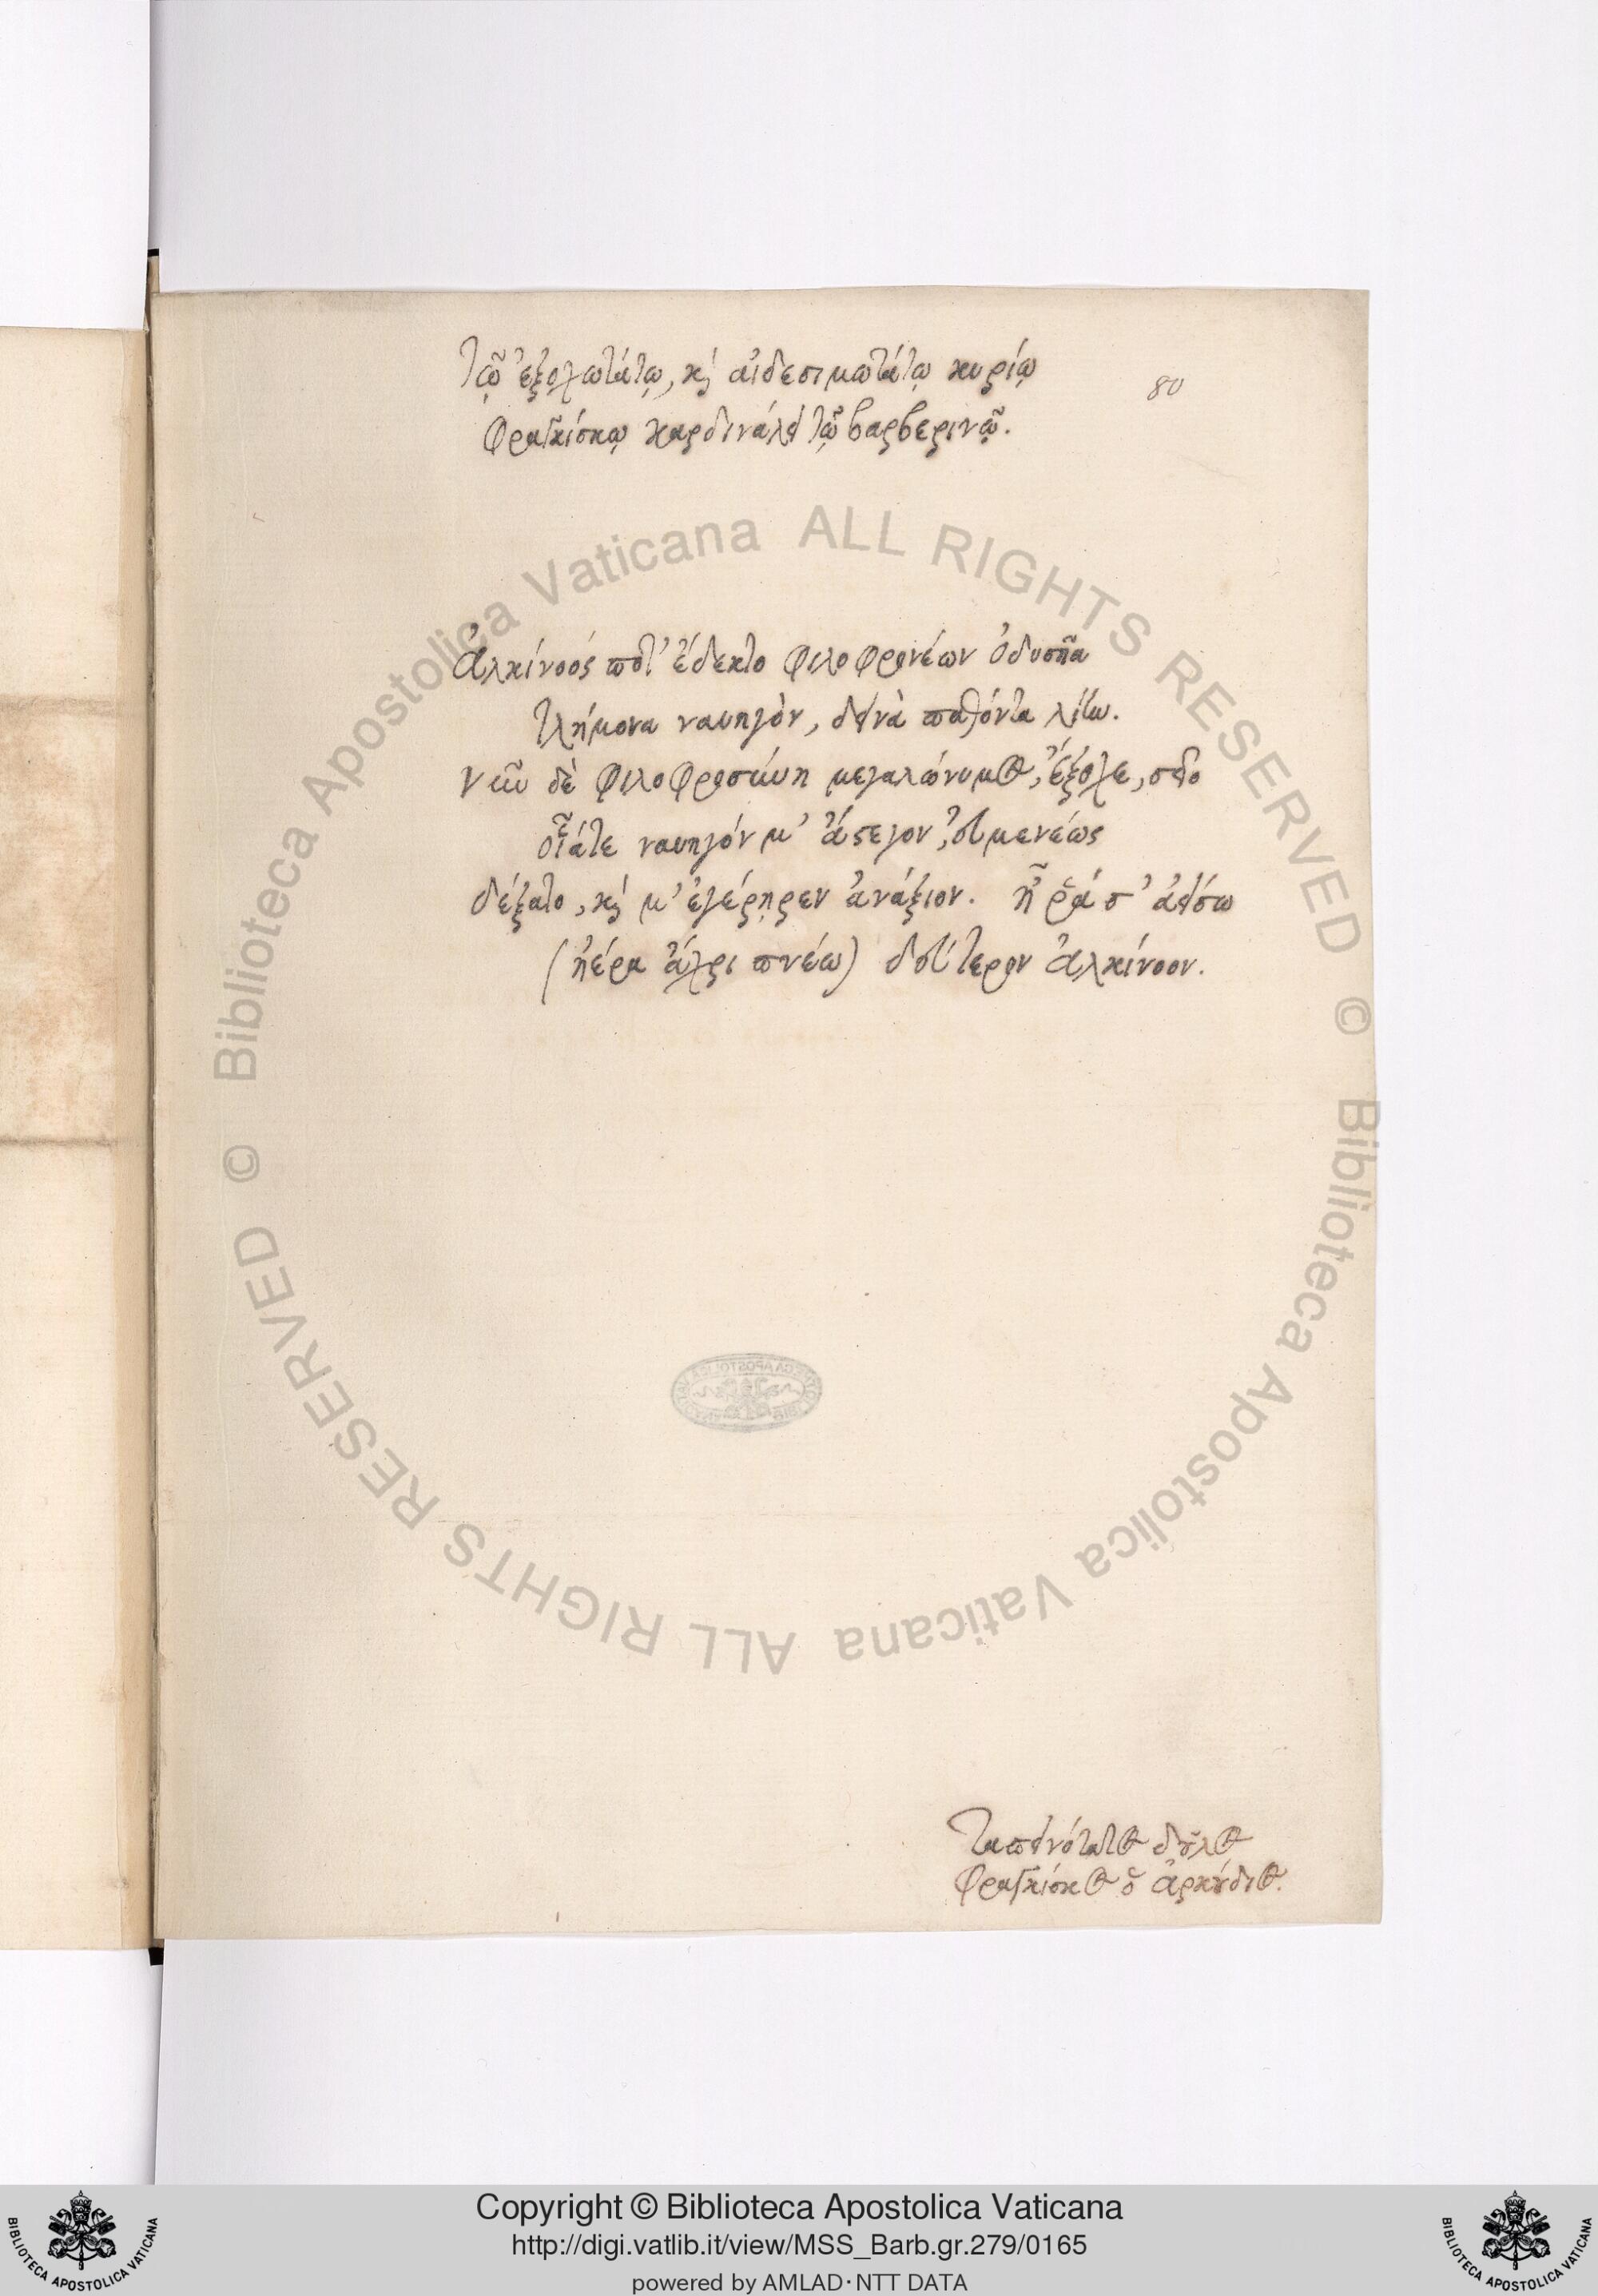 Τῷ ἐξοχωτάτῳ, καὶ αἰδεσιμωτάτῳ κυρίῳ
80
Φραγκίσκῳ καρδινάλει τῷ βαρβερινῷ.
Ἀλκίνοός ποτ' ἔδεκτο φιλοφρονέων ὀδυσῆα
τλήμονα ναυηγὸν, δεινὰ παθόντα λίην.
νῦν δὲ φιλοφροσύνη μεγαλώνυμος, ἔξοχε, σεῖο
ναυηγόν μ' ἄστεγον, εὐμενέως
δέξατο, καὶ μ' ἐγέρηρεν ἀνάξιον. ἦ ῥά σ' ἀείσω
(ἠέρα ἄχρι πνέω) δεύτερον ἀλκίνοον.
Ταπεινότατος δοῦλος
Φραγκίσκος ὁ ἀρκούδιος.
© Biblioteca Apostolica Vaticana ALL RIGHTS RESERVED
© Biblioteca Apostolica Vaticana ALL RIGHTS RESERVED
Copyright © Biblioteca Apostolica Vaticana
http://digi.vatlib.it/view/MSS_Barb.gr.279/0165
powered by AMLAD·NTT DATA
BIBLIOTECA APOSTOLICA VATICANA
BIBLIOTECA APOSTOLICA VATICANA